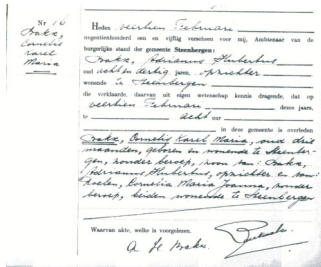 Nr 16
Brakx,
Cornelis
Karel
Maria
Heden veertien Februari
negentienhonderd een en vijftig verscheen voor mij, Ambtenaar van de
burgerlijke stand der gemeente Steenbergen:
Brakx, Adrianus Hubertus
oud acht en dertig jaren, opzichter
wonende te Steenbergen
die verklaarde, daarvan uit eigen wetenschap kennis dragende, dat op
veertien Februari dezes jaars,
te acht uur
in deze gemeente is overleden
Brakx, Cornelis Karel Maria, oud drie
maanden, geboren en wonende te Steenber-
gen, zonder beroep, zoon van: Brakx,
Adrianus Hubertus, opzichter en van:
Cornelia Maria Joanna, zonder
beroep, beiden wonende te Steenbergen
Waarvan akte, welke is voorgelezen.
A H Brakx